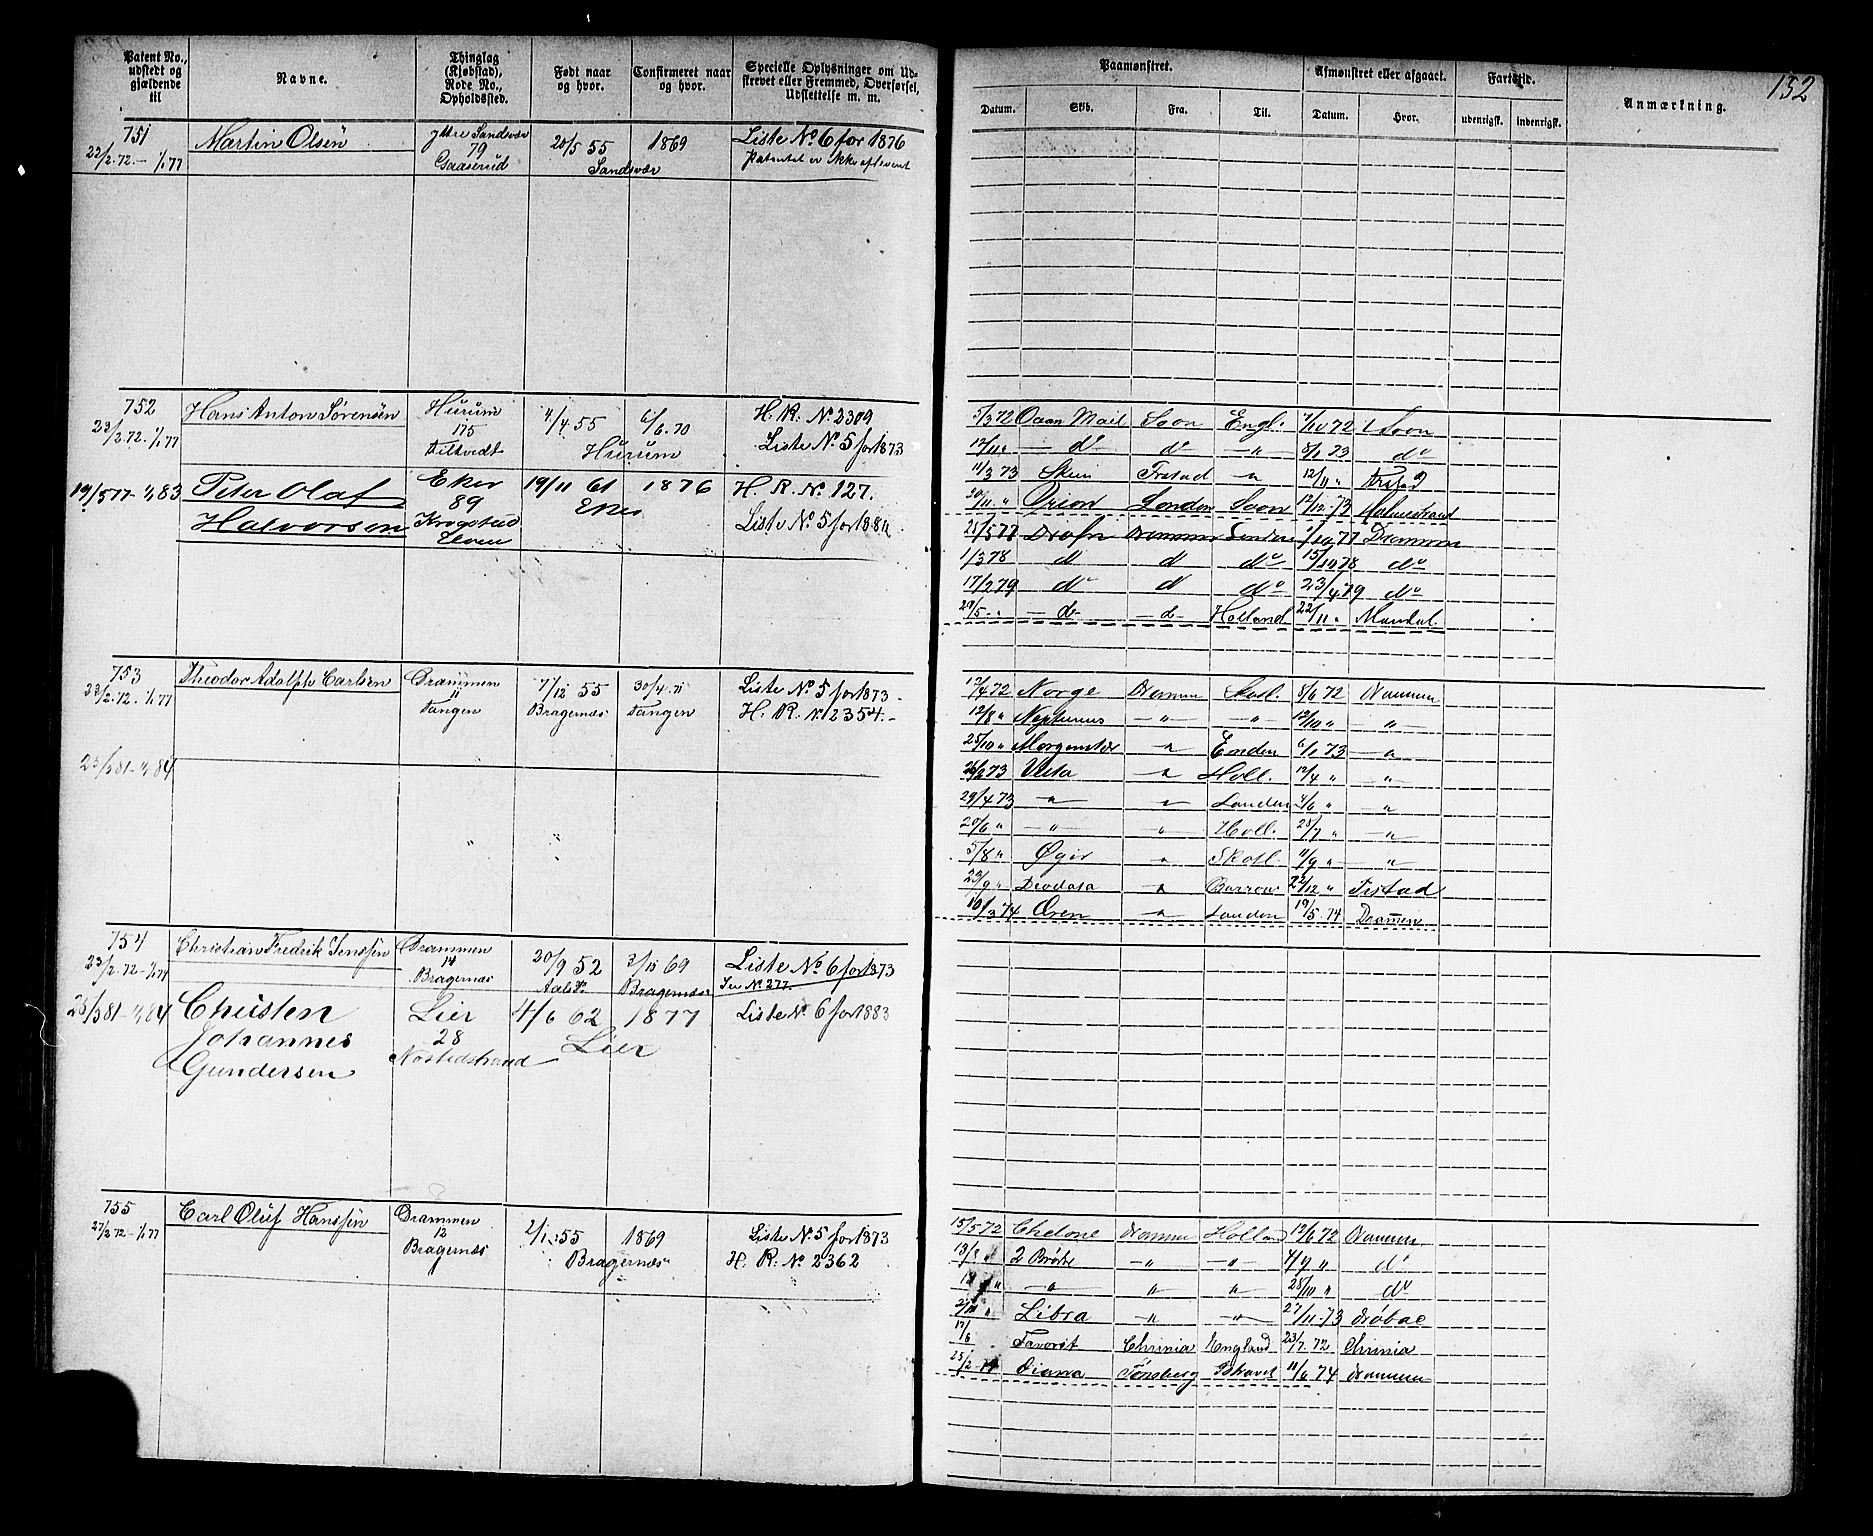 152
Patent No., udstedt og gjældende til
Navne.
Thinglag (Kjøbstad), Rode No., Opholdssted.
Født naar og hvor.
Confirmeret naar og hvor.
Specielle Oplysninger om Udskrevet eller Fremmed, Overførsel, Udslettelse m. m.
Paamønstret.
Afmønstret eller afgaaet.
Fartstid.
Anmærkning.
Datum. Skib. Fra. Til. Datum. Hvor. udenrigsk. indenrigsk.
751 Martin Olsen Ytre Sandsvær 20/5 55 1869 Liste No 6 for 1876
22/2.72.- 1/1 77 79 Gaaserud Sandsvær Patentet er ikke afleveret
752 Hans Anton Sørensen Hurum 4/4 55 6/6.70 H. R. No. 2309
23/2.72.-1/1 77 175 Filtvedt Hurum Liste No 5 for 1873
19/5 77- 1/1 83 Peter Olaf Eker 19/11 61 1876 H. R. No. 127.
Halvorsen 89 Krogstad Elven Eker Liste No 5 for 188
5/3 72 Mail Soon Engl. 72 Soon
12/11 " — do do — " — 73 do
11/3 73 Skien Frstad " 12/11 "
20/11 " Orion London Soon 12/12 73 Holmestrand
25/5 77 Drafn Drammen London 77 Drammen
1/3 78 do do do 15/10 78 do
17/2 79 do do do 23/4 79 do
29/5 - " — do — — do — Holland 22/11 " Mandal
753 Theodor Adolph Carlsen Drammen 7/12 55 30/4 71 Liste No 5 for 1873
23/2.72.-1/1 77 11 Tangen Bragernæs Tangen H. R. No 2354.
23/3 81-1/1 84
12/4 72 Norge Drammen Skotl. 8/6 72 Drammen
12/8 " Neptunus — " — — " — 12/10 " "
25/10 " Morgenstar " Emden 6/1 73 "
26/2 73 Vesta " Holl. 12/4 " "
29/4 73 " " London 4/6 " "
20/6 " — " — " Holl. 25/7 " "
5/8 " Øgir " Skotl. 11/9 " "
23/9 " " Barrow 22/12 " Frstad
10/3 74 Ören " London 19/5. 74 Drammen
754 Christian Fredrik Jenssen Drammen 20/9 52 3/10 69 Liste No 6 for 1873
23/2.72-1/1 77 14 Bragernæs Bragernæs Se No 277
23/3 81-1/1 84 Christen Lier 4/6 62 1877 Liste No 6 for 1883
Johannes 28 Lier
Gundersen Nøstedstrand
755 Carl Oluf Hanssen Drammen 2/1 55 1869 Liste No 5 for 1873
27/2 72-1/1 77 12 Bragernæs Bragernæs H. R. No 2362
15/5 72 Chelone Drammen Holland 12/6 72 Drammen
13/8 " 2 Brødre — " — — " — 4/9 " do
— " — " " 25/10 " do
" Libra " " 27/11.73 Drøbac
17/6 Favorit Chrnia England 23/7.72 Chrnia
25/2 74 Diana Tønsberg Gravel 11/6 74 Drammen